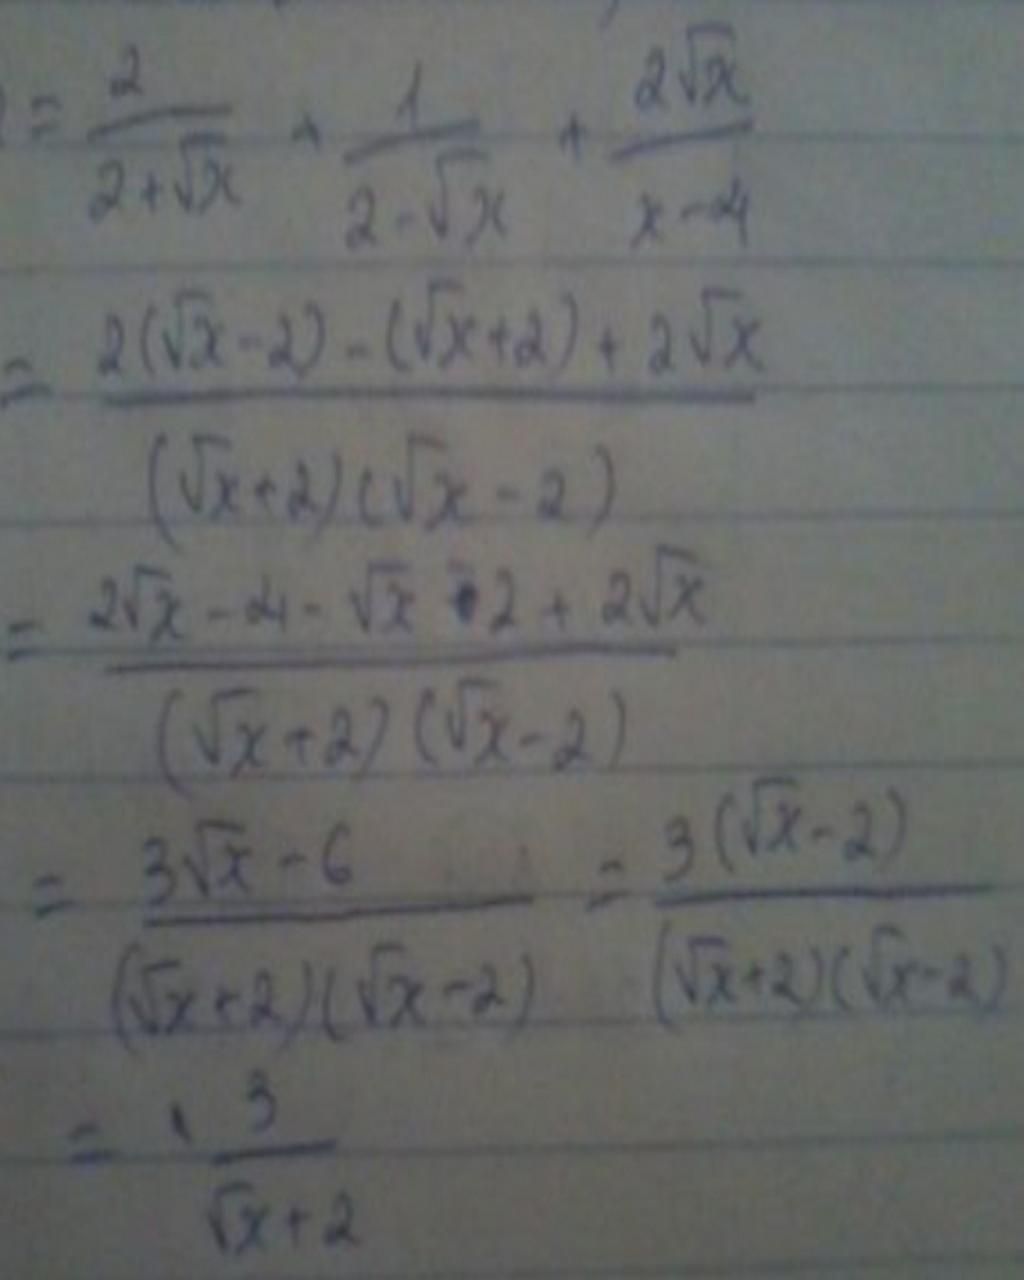 = 2/(2+√x) + 1/(2-√x) + 2√x/(x-4)
= (2(√x-2) - (√x+2) + 2√x)/((√x+2)(√x-2))
= (2√x - 4 - √x - 2 + 2√x)/((√x+2)(√x-2))
= (3√x - 6)/((√x+2)(√x-2)) = 3(√x-2)/((√x+2)(√x-2))
= 3/(√x+2)